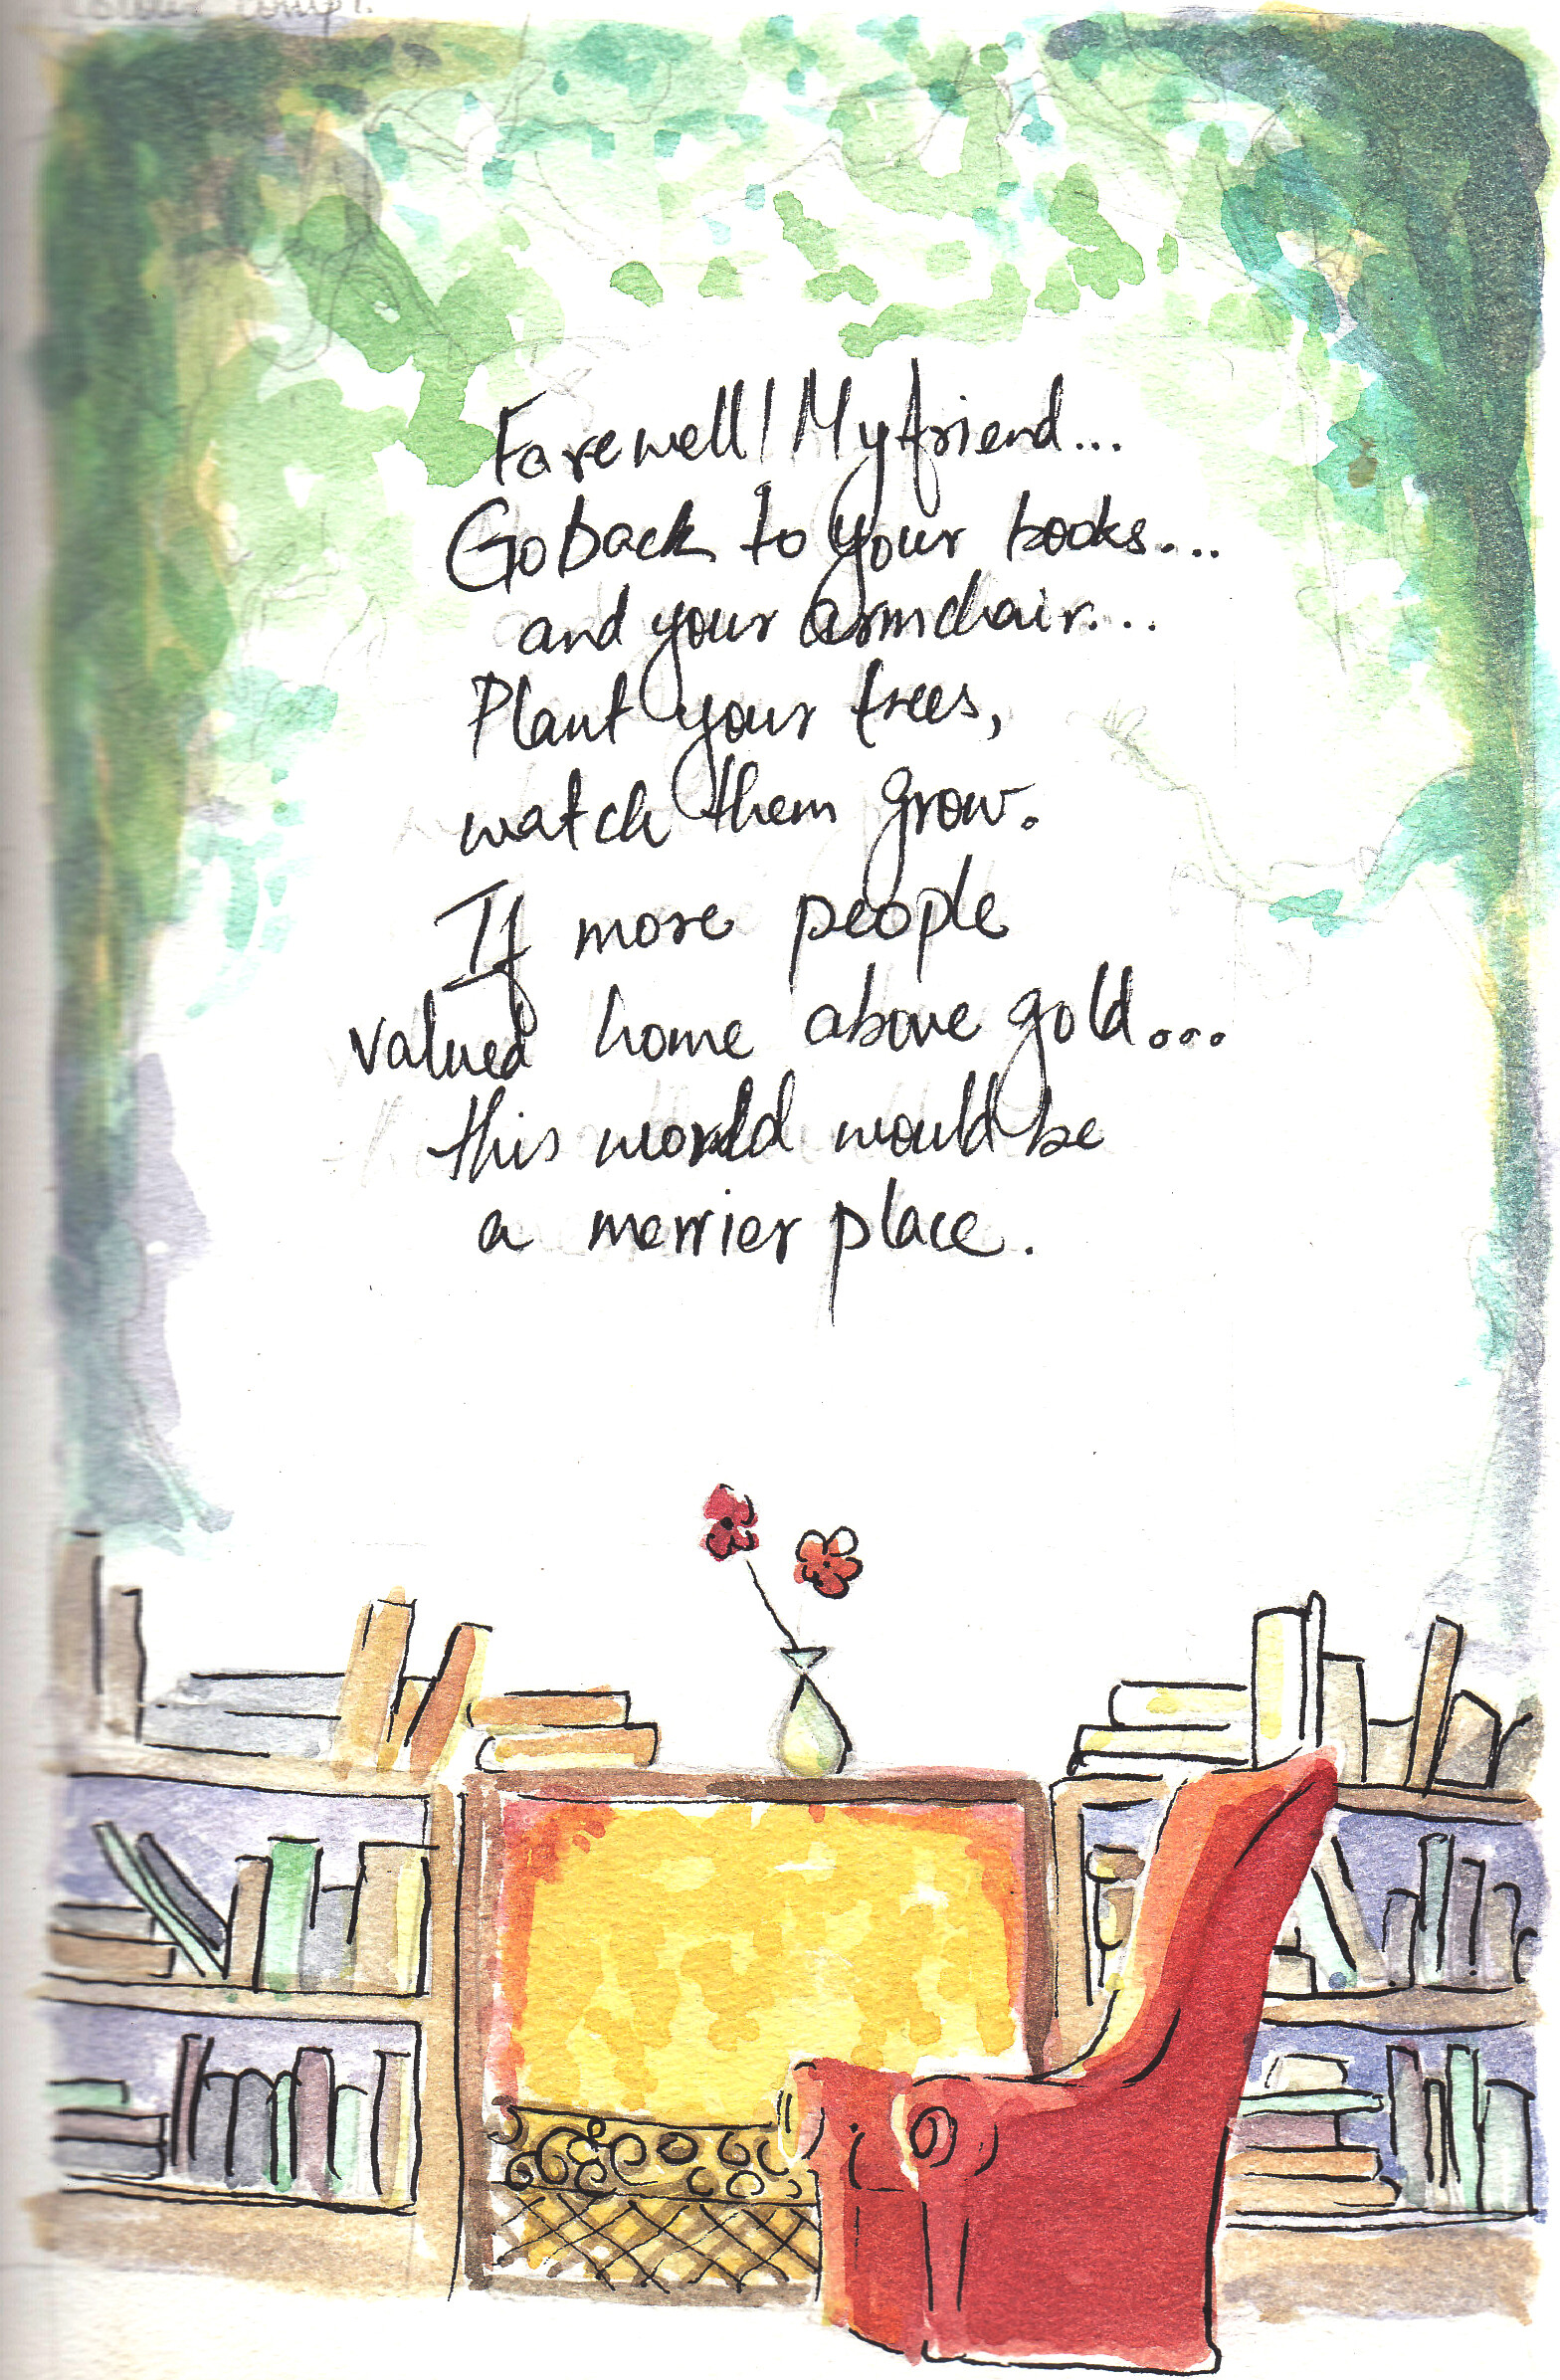 Farewell! My friend...
Go back to your books...
and your armchair...
Plant your trees,
watch them grow.
If more people
valued home above gold...
this world would be
a merrier place.